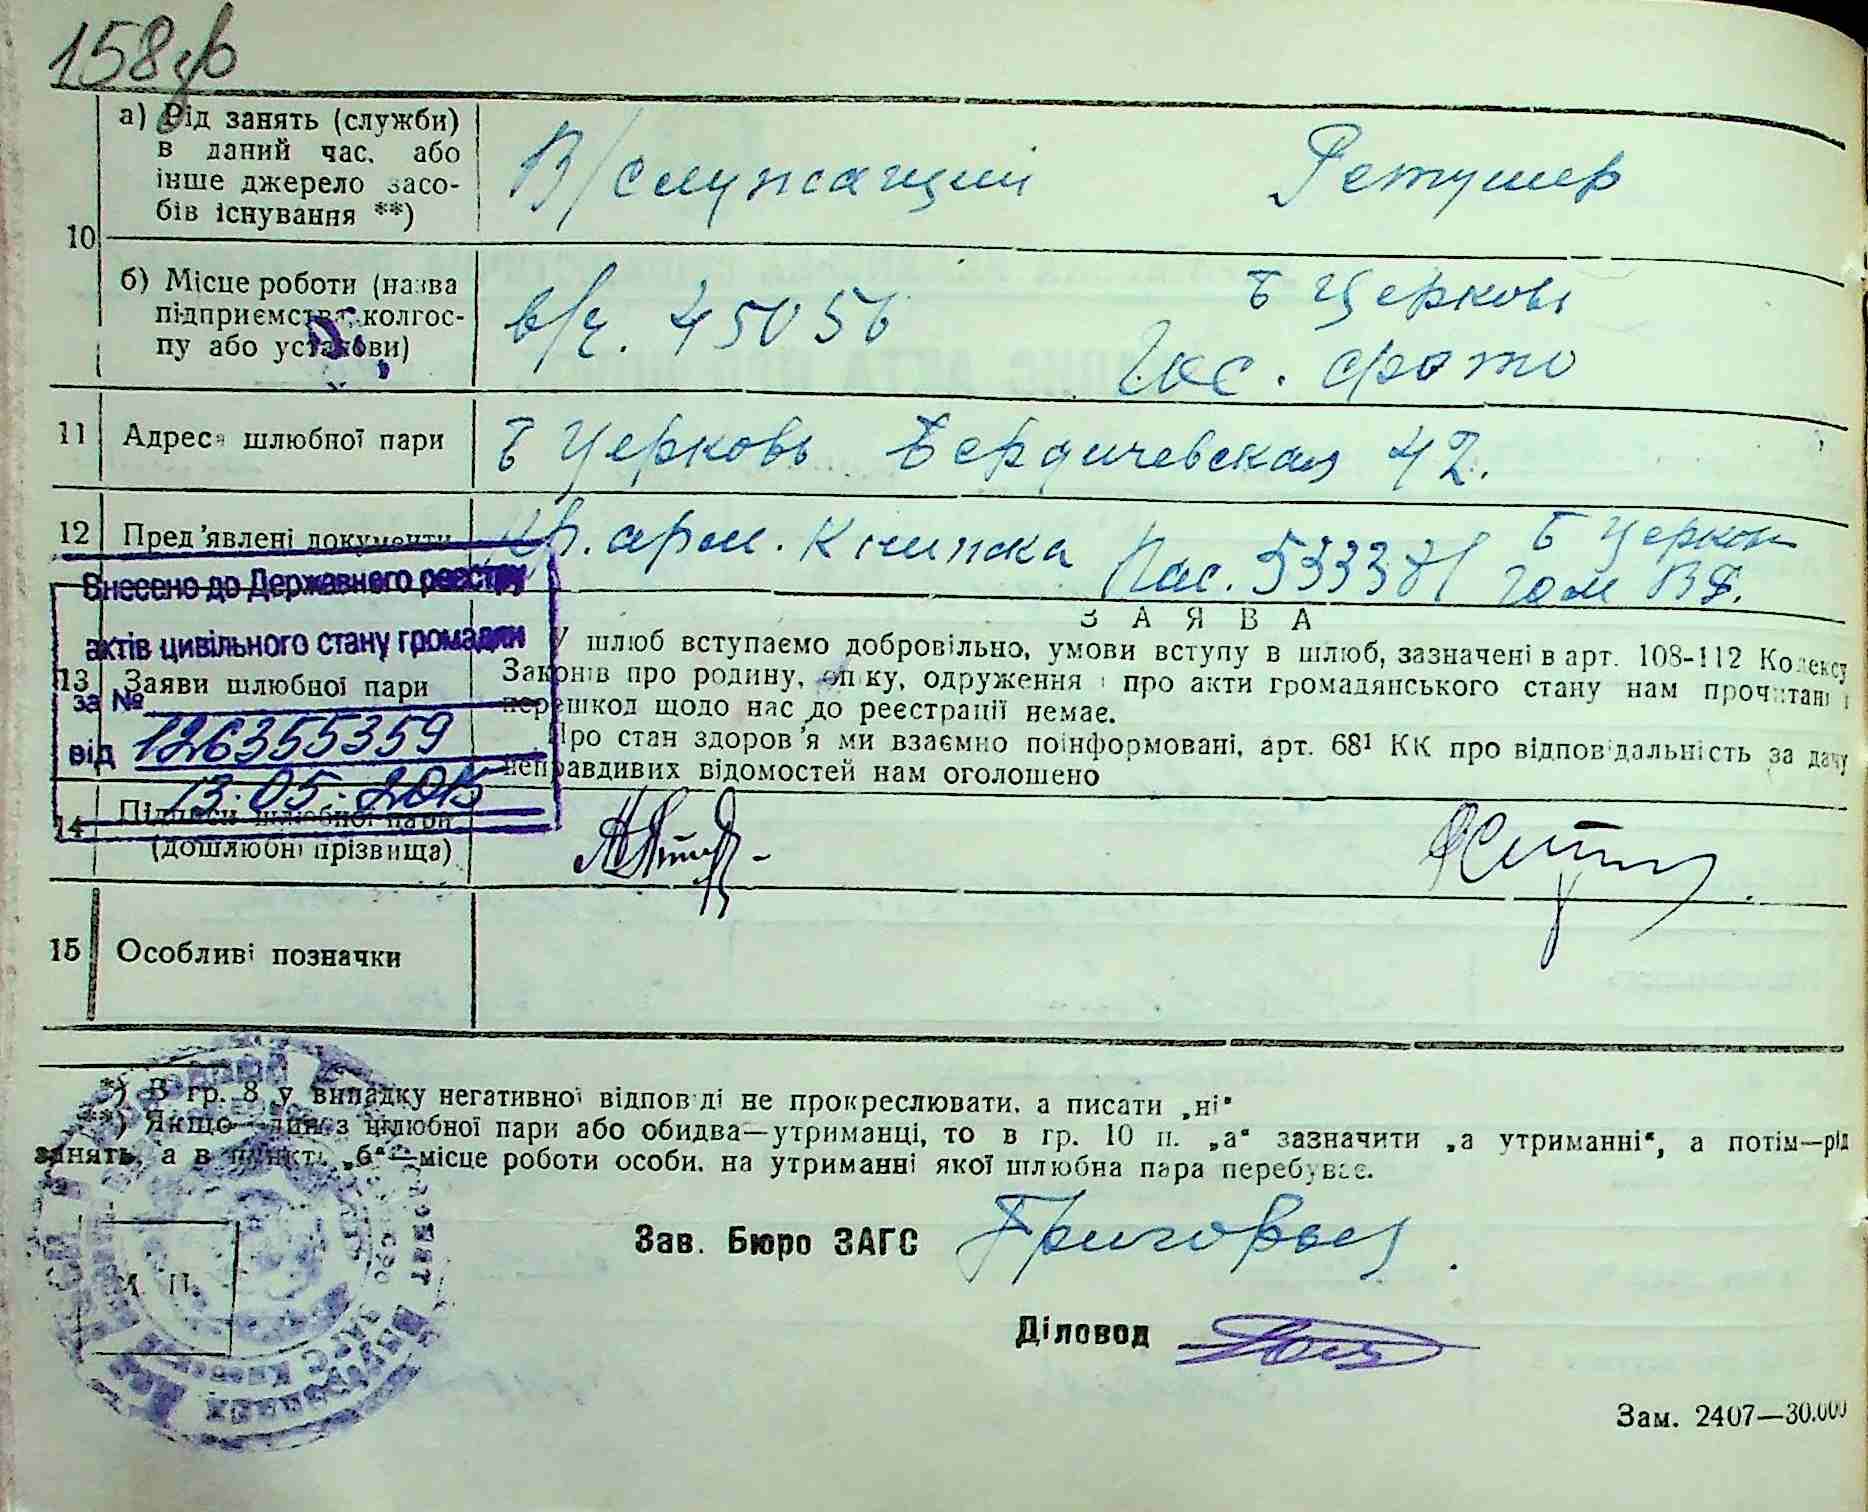 158зв
10
а) Рід занять (служби)
в даний час, або
інше джерело засо-
бів існування **)
В/служащий
Ретушер
б) Місце роботи (назва
підприємства, колгос-
пу або установи)
в/ч. 45056
Б Церковь
фото
11 Адреса шлюбної пари
Б Церковь Бердичевская 42.
12 Пред'явлені документи
Кр. арм. Книжка
Пас. 533371
Б Церков
Внесено до Державного реєстру
актів цивільного стану громадян
за №
126355359
від
13.05.2015
ЗАЯВА
13 Заяви шлюбної пари
У шлюб вступаємо добровільно, умови вступу в шлюб, зазначені в арт. 108-112 Кодексу
Законів про родину, опіку, одруження і про акти громадянського стану нам прочитані і
перешкод щодо нас до реєстрації немає.
Про стан здоров'я ми взаємно поінформовані, арт. 68¹ КК про відповідальність за дачу
неправдивих відомостей нам оголошено
14 Підписи шлюбної пари
(дошлюбні прізвища)
15 Особливі позначки
*) В гр. 8 у випадку негативної відповіді не прокреслювати, а писати „ні"
**) Якщо один з шлюбної пари або обидва—утриманці, то в гр. 10 п. „а" зазначити „а утриманні", а потім—рід
занять, а в пункті „б"—місце роботи особи, на утриманні якої шлюбна пара перебуває.
Зав. Бюро ЗАГС Григорьев
М. П.
Діловод
Зам. 2407—30.000